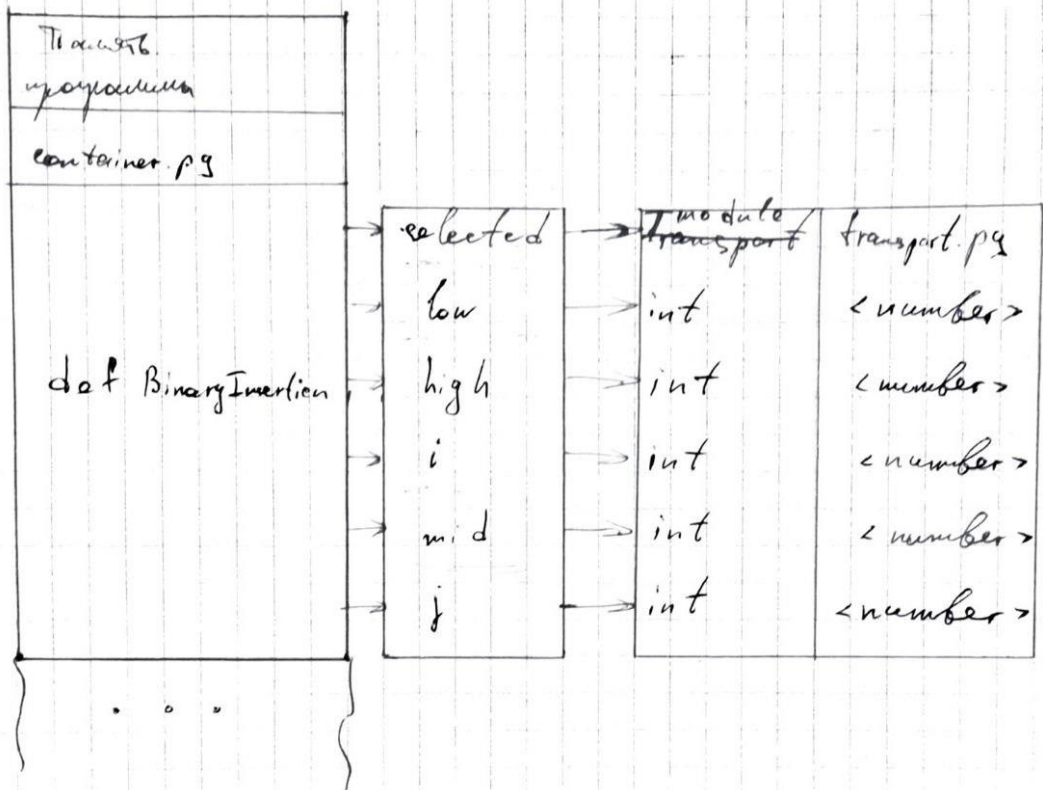 Память
программы
container.py
def BinaryInsertion
selected
low
high
i
mid
j
module
Transport
transport.py
int
<number>
int
<number>
int
<number>
int
<number>
int
<number>
. . .